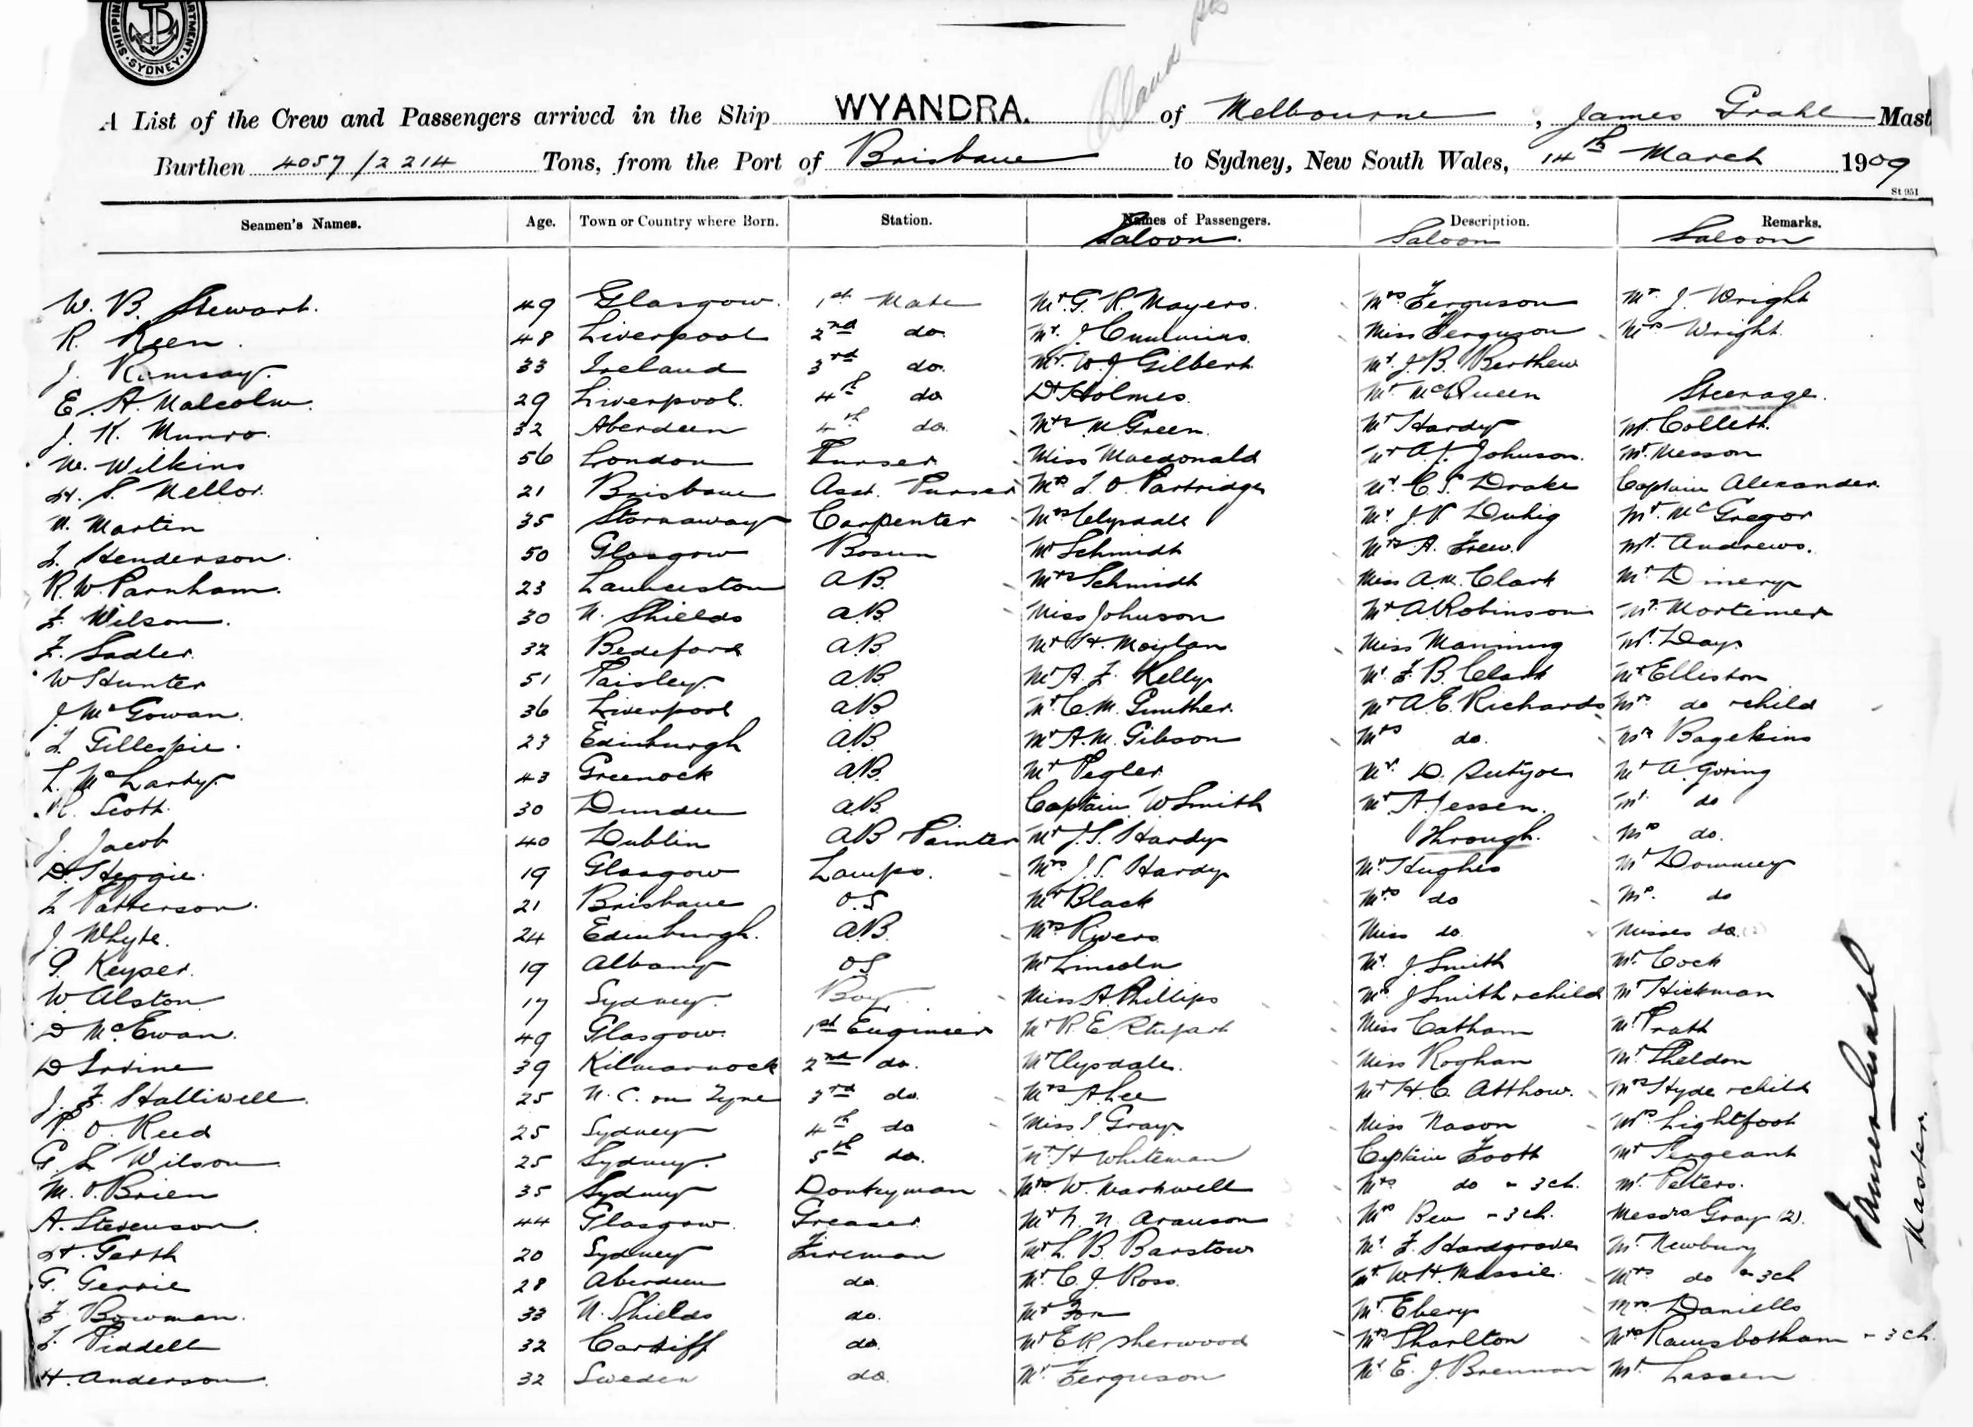 SHIPPING DEPARTMENT SYDNEY
A List of the Crew and Passengers arrived in the Ship WYANDRA. of Melbourne, James Grahl Mast
Burthen 4057/2214 Tons, from the Port of Brisbane to Sydney, New South Wales, 14th March 1909
St 951
Seamen's Names. Age. Town or Country where Born. Station. Names of Passengers. Description. Remarks.
Saloon. Saloon Saloon
W. B. Stewart. 49 Glasgow. 1st Mate Mr G. R. Mayers. Mrs Ferguson Mr J. Wright
R Keen. 48 Liverpool 2nd do. Mr. J. Cummins. Miss Ferguson Mrs Wright.
J. Ramsay. 33 Ireland 3rd do. Mr. W. J Gilbert Mr J. B. Berthew
E. A. Malcolm. 29 Liverpool. 4th do Dr Holmes. Mr McQueen Steerage.
J. K. Munro. 32 Aberdeen 4th do. Mrs M. Green. Mr Hardy Mr. Collett.
W. Wilkins 56 London Purser Miss Macdonald Mr A. J. Johnson. Mr. Messon
H. S. Mellor. 21 Brisbane Asst. Purser Mrs J. O. Partridge Mr. C. S. Drake Captain Alexander.
N. Martin 35 Stornaway Carpenter Mrs Clysdale Mr J. V Duhig Mr. McGregor
J. Henderson. 50 Glasgow Bosun Mr Schmidt Mrs A. Frew. Mr. Andrews.
R. W. Parnham. 23 Launceston A.B. Mrs Schmidt Miss A. M. Clark Mr Dinery
F. Wilson. 30 N. Shields A.B. Miss Johnson Mr A. Robinson Mr. Mortimer
F. Sadler. 32 Bedeford A.B. Mr H. Moylan Miss Manning Mr. Day
W Hunter 51 Paisley. A.B. Mr A. F. Kelly Mr. F. B. Clark Mr Elliston
J. McGowan. 36 Liverpool A.B. Mr C. M. Gunther. Mr A. E. Richards Mrs do + child
J. Gillespie. 23 Edinburgh A.B. Mr A. M. Gibson Mrs do. Mr Bagekins
L. McLarty. 43 Greenock A.B. Mr Pegler Mr. D. Mr A. Goring
R. Scott 30 Dundee A.B. Captain W Smith Mr A Jessen. Mr. do
J. Jacob 40 Dublin AB + Painter Mr J. S. Hardy Through. Mrs do.
D. Heggie. 19 Glasgow Lamps. Mrs J. S. Hardy Mr Hughes Mr Downey
J. Patterson. 21 Brisbane O.S Mr Black Mrs do Mrs. do
J. Whyte. 24 Edinburgh. A.B. Mrs Rivers Miss do. Misses do. (2)
P. Keyser. 19 Albany O.S Mr Lincoln Mr. J. Smith Mr. Cock
W Alston 17 Sydney. Boy. Miss A. Phillips Mrs J Smith + child Mr Hickman
D McEwan. 49 Glasgow. 1st Engineer Mr R. E. Miss Catham Mr. Pratt
D Irvine 39 Kilmarnock 2nd do. Mr Clysdale. Miss Roghan Mr Sheldon
J. F. Halliwell. 25 N. C. on Tyne 3rd do. Mrs A Lee Mr H. C. Atthow. Mrs Hyde + child
R. O. Reed 25 Sydney 4th do Miss I Gray Miss Nason Mrs Lightfoot
G. L Wilson 25 Sydney. 5th do. Mr H Whiteman Captain Foott Mr Sergeant
M. O'Brien 35 Sydney Donkeyman Mrs W. Markwell Mrs do + 3 ch. Mr. Petters.
A. Stevenson. 44 Glasgow. Greaser Mr N. N. Aranson Mrs Beu + 3 ch. Messrs Gray (2).
H. Garth 20 Sydney Fireman Mr L. B. Barstow Mr. F. Hardgrave Mr. Newbury
G. Gerrie 28 Aberdeen do. Mr. C. J. Ross. Mr. W. H. Massie. Mrs do + 3 ch
F. Bowman. 33 N. Shields do. Mr Fox Mr. Ebery Mrs Daniells
J. Piddell 32 Cardiff do. Mr E R Sherwood Mrs Tharlton Mrs Ramsbotham + 3 ch.
H. Anderson. 32 Sweden do. Mr. Ferguson Mr E. J. Brennan Mr. Lassen
James Grahl
Master.